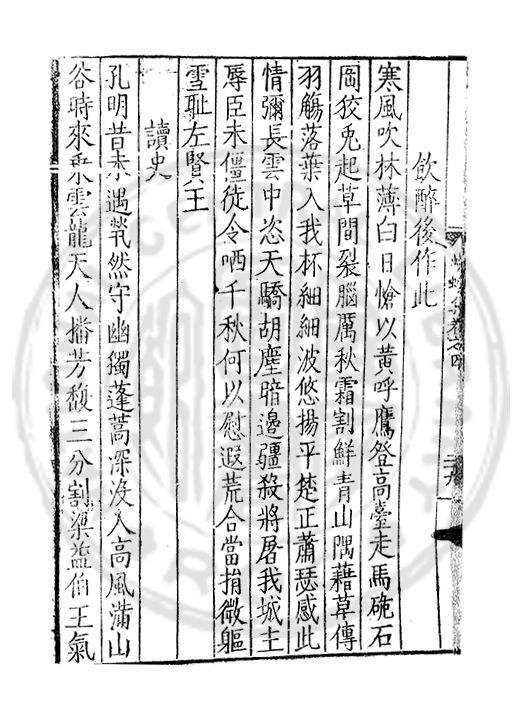 蠛蠓集卷之四
二九
飲醉後作此
寒風吹林薄白日愴以黃呼鷹登高臺走馬硊石
岡狡兎起草間裂腦厲秋霜割鮮青山隅藉草傳
羽觴落葉入我杯細細波悠揚平楚正蕭瑟感此
情彌長雲中恣天驕胡塵暗邊疆殺將屠我城主
辱臣未僵徒令哂千秋何以慰遐荒合當捐微軀
雪耻左賢王
讀史
孔明昔未遇煢然守幽獨蓬蒿深没人高風滿山
谷時來乗雲龍天人播芳馥三分割梁益伯王氣